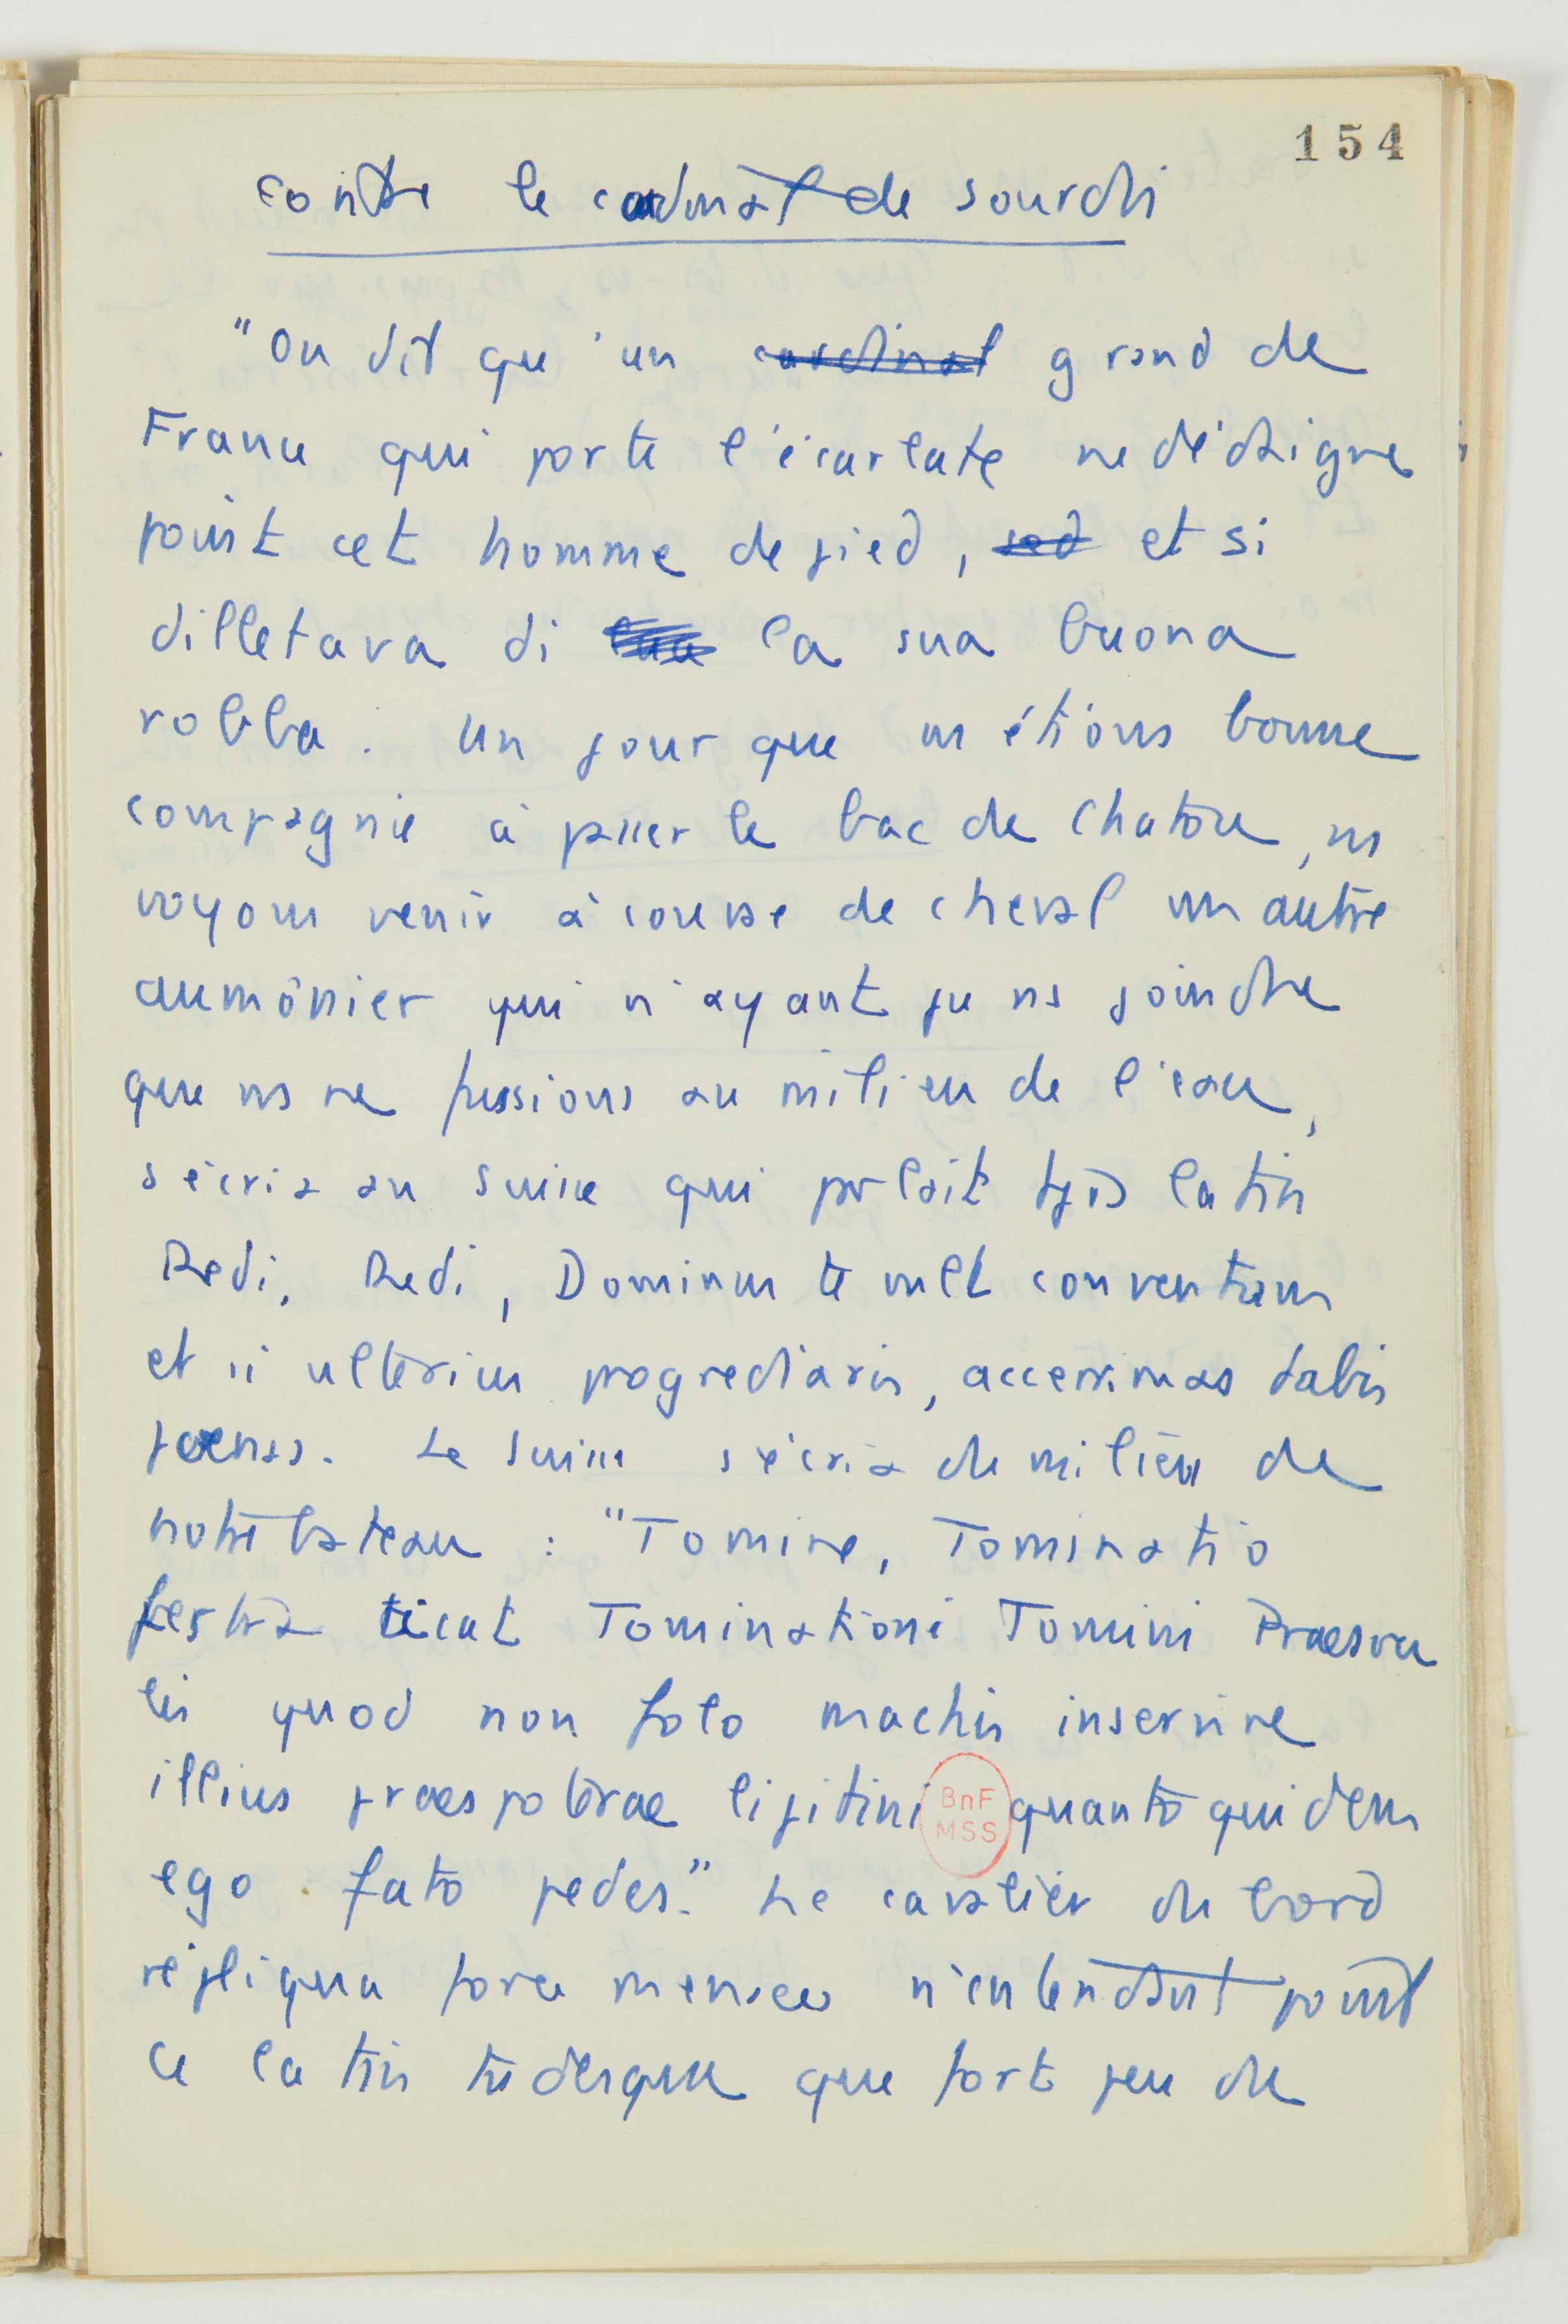 154
contre le cardinal de sourdis
"On dit qu'un cardinal grand de
France qui porte l'écarlate ne dédaigne
point cet homme de pied, sed et si
dilletava di la sua buona
robba. Un jour que ns étions bonne
compagnie à passer le bac de Chatou, ns
voyons venir à course de cheval un autre
aumônier qui n'ayant pu ns joindre
que ns ne fussions au milieu de l'eau,
s'écria au suisse qui parlait tjrs latin
Redi, Redi, Dominus te vult conventum
et si ulterius progrediaris, accerrimas dabis
poenas. Le suisse s'écria du milieu de
notre bateau : "Tomine, Tominatio
festra ticat Tominationi Tomini Praesva
lis quod non folo machis inservire
illius praespoterae lipitini quanto quidem
ego fato pedes." Le cavalier du bord
répliqua force menaces n'entendant point
ce latin tudesque que fort peu de
BnF
MSS